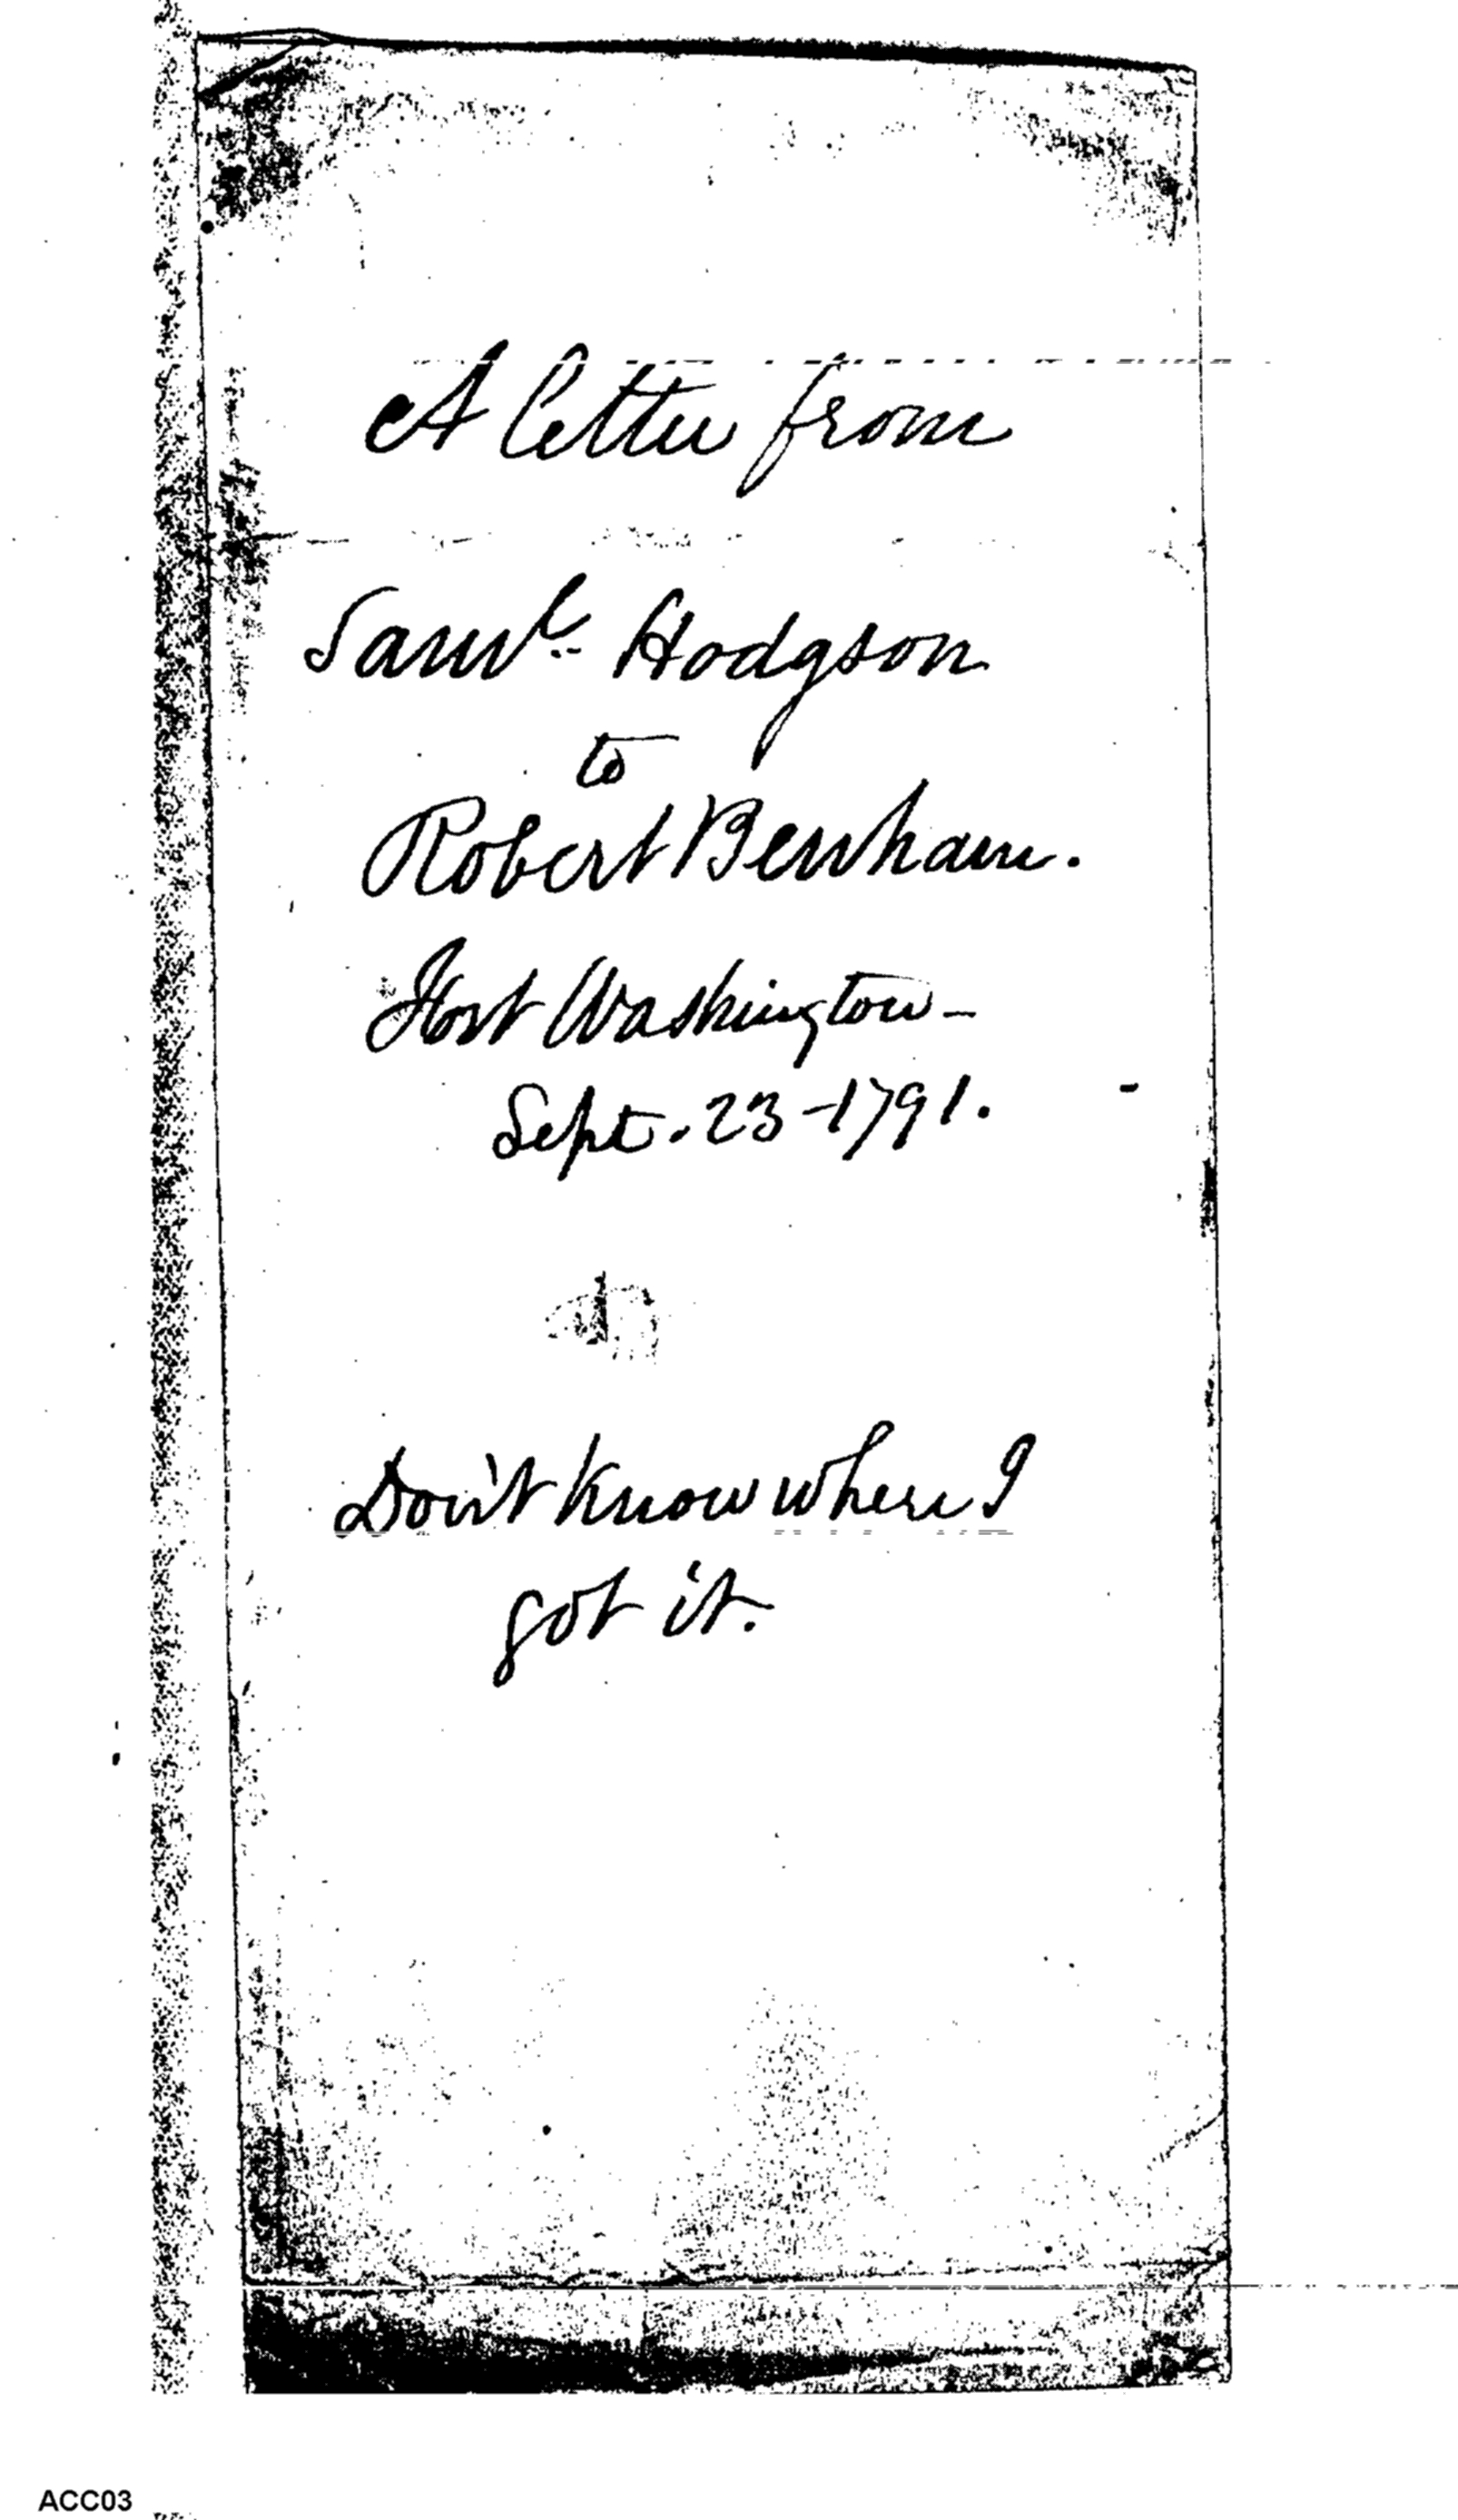 A letter from
Saml. Hodgson
to
Robert Benham.
Fort Washington –
Sept. 23 – 1791.
Don't know where I
got it.
ACC03